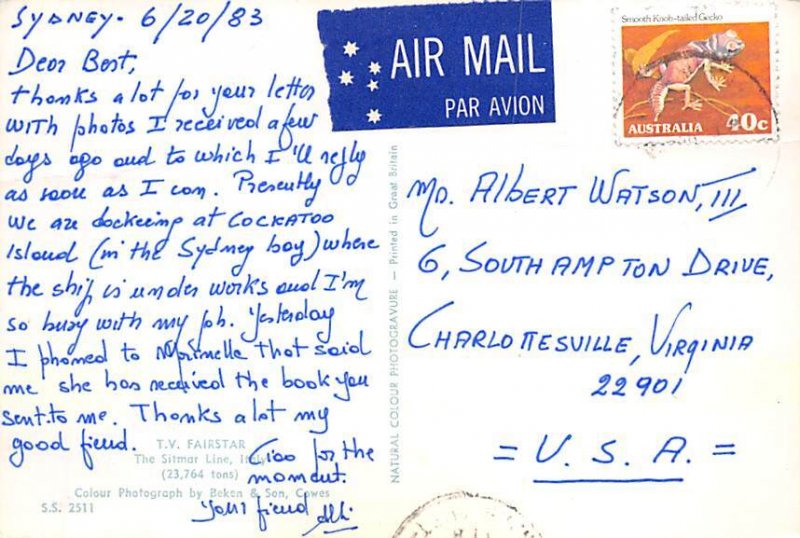 SYDNEY - 6/20/83
Dear Bert,
thanks a lot for your letter
with photos I received a few
days ago and to which I'll reply
as soon as I can. Presently
we are dockeing at COCKATOO
Island (in the Sydney bay) where
the ship is under works and I'm
so busy with my job. Yesterday
I phoned to that said
me she has received the book you
sent to me. Thanks a lot my
good fiend.
Ciao for the
moment.
your fiend
T.V. FAIRSTAR
The Sitmar Line, Italy
(23,764 tons)
Colour Photograph by Beken & Son, Cowes
S.S. 2511
NATURAL COLOUR PHOTOGRAVURE — Printed in Great Britain
AIR MAIL
PAR AVION
Smooth Knob-tailed Gecko
AUSTRALIA 40c
MR. ALBERT WATSON, III
6, SOUTHAMPTON DRIVE,
CHARLOTTESVILLE, VIRGINIA
22901
= U. S. A. =